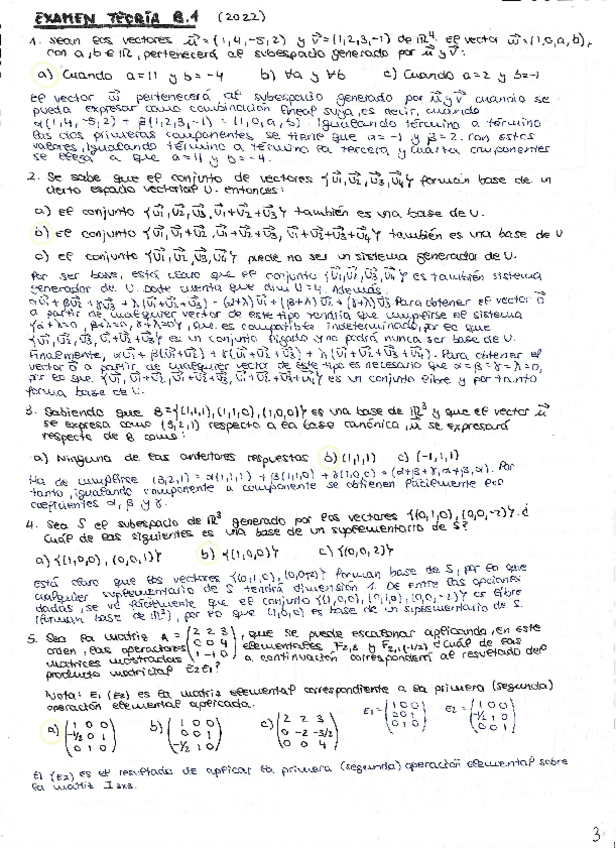 EXAMEN TEORÍA B.1 (2022)
1. Sean los vectores u⃗ = (1,4,-5,2) y v⃗ = (1,2,3,-1) de ℝ⁴. El vector w⃗ = (1,0,a,b),
con a,b ∈ ℝ, pertenecerá al subespacio generado por u⃗ y v⃗:
a) Cuando a=11 y b=-4 b) ∀a y ∀b c) Cuando a=2 y b=-1
El vector w⃗ pertenecerá al subespacio generado por u⃗ y v⃗ cuando se
pueda expresar como combinación lineal suya, es decir, cuando
α(1,4,-5,2) + β(1,2,3,-1) = (1,0,a,b). Igualando término a término
las dos primeras componentes, se tiene que α=-1 y β=2. Con estos
valores, igualando término a término la tercera y cuarta componentes
se llega a que a=11 y b=-4.
2. Se sabe que el conjunto de vectores {u⃗1,u⃗2,u⃗3,u⃗4} forman base de un
cierto espacio vectorial U. Entonces:
a) El conjunto {u⃗1,u⃗2,u⃗3,u⃗1+u⃗2+u⃗3} también es una base de U.
b) El conjunto {u⃗1,u⃗1+u⃗2,u⃗1+u⃗2+u⃗3,u⃗1+u⃗2+u⃗3+u⃗4} también es una base de U
c) El conjunto {u⃗1,u⃗2,u⃗3,u⃗4} puede no ser un sistema generador de U.
Por ser base, está claro que el conjunto {u⃗1,u⃗2,u⃗3,u⃗4} es también sistema
generador de U. cuenta que dim U=4. Además,
αu⃗1+βu⃗2+γu⃗3+λ(u⃗1+u⃗2+u⃗3) = (α+λ)u⃗1+(β+λ)u⃗2+(γ+λ)u⃗3 Para obtener el vector 0⃗
a partir de cualquier vector de este tipo tendría que cumplirse el sistema
{α+λ=0, β+λ=0, γ+λ=0}, que es compatible indeterminado, por lo que
{u⃗1,u⃗2,u⃗3,u⃗1+u⃗2+u⃗3} es un conjunto ligado y no podrá nunca ser base de U.
Finalmente, αu⃗1+β(u⃗1+u⃗2)+γ(u⃗1+u⃗2+u⃗3)+λ(u⃗1+u⃗2+u⃗3+u⃗4). Para obtener el
vector 0⃗ a partir de cualquier vector de este tipo es necesario que α=β=γ=λ=0,
por lo que {u⃗1,u⃗1+u⃗2,u⃗1+u⃗2+u⃗3,u⃗1+u⃗2+u⃗3+u⃗4} es un conjunto libre y por tanto
forma base de U.
3. Sabiendo que B={(1,1,1),(1,1,0),(1,0,0)} es una base de ℝ³ y que el vector u⃗
se expresa como (3,2,1) respecto a la base canónica, u⃗ se expresará
respecto de B como:
a) Ninguna de las anteriores respuestas b) (1,1,1) c) (-1,1,1)
Ha de cumplirse (3,2,1) = α(1,1,1) + β(1,1,0) + γ(1,0,0) = (α+β+γ,α+β,α). Por
tanto, igualando componente a componente se obtienen fácilmente los
coeficientes α, β y γ.
4. Sea S el subespacio de ℝ³ generado por los vectores {(0,1,0),(0,0,-2)}. ¿
Cuál de las siguientes es una base de un suplementario de S?
a) {(1,0,0),(0,0,1)} b) {(1,0,0)} c) {(0,0,2)}
Está claro que los vectores {(0,1,0),(0,0,-2)} forman base de S, por lo que
cualquier suplementario de S tendrá dimensión 1. De entre las opciones
dadas, se ve fácilmente que el conjunto {(1,0,0),(0,1,0),(0,0,-2)} es libre
(forman base de ℝ³), por lo que (1,0,0) es base de un suplementario de S.
5. Sea la matriz A = (2 2 3; 0 0 4; 1 -1 0), que se puede escalonar aplicando, en este
orden, las operaciones elementales F2,3 y F2,1(-1/2) ¿Cuál de las
matrices mostradas a continuación corresponden al resultado del
producto matricial E2E1?
Nota: E1 (E2) es la matriz elemental correspondiente a la primera (segunda)
operación elemental aplicada.
a) (1 0 0; -1/2 0 1; 0 1 0) b) (1 0 0; 0 0 1; -1/2 1 0) c) (2 2 3; 0 -2 -3/2; 0 0 4) E1 = (1 0 0; 0 1; 0 1 0) E2 = (1 0 0; -1/2 1 0; 0 0 1)
E1 (E2) es el resultado de aplicar la primera (segunda) operación elemental sobre
la matriz I3x3.
3